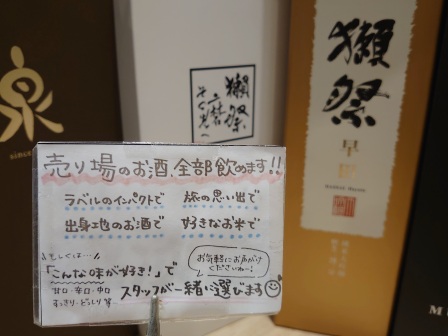 泉
since
獺祭
磨
その先へ
獺祭
早田
売り場のお酒、全部飲めます!!
ラベルのインパクトで
旅の思い出で
出身地のお酒で
好きなお米で
もしくは…
「こんな味が好き！」で
お気軽にお声がけくださいねー♪
甘口・辛口・中口
すっきり・どっしり 等…
スタッフが一緒に選びます